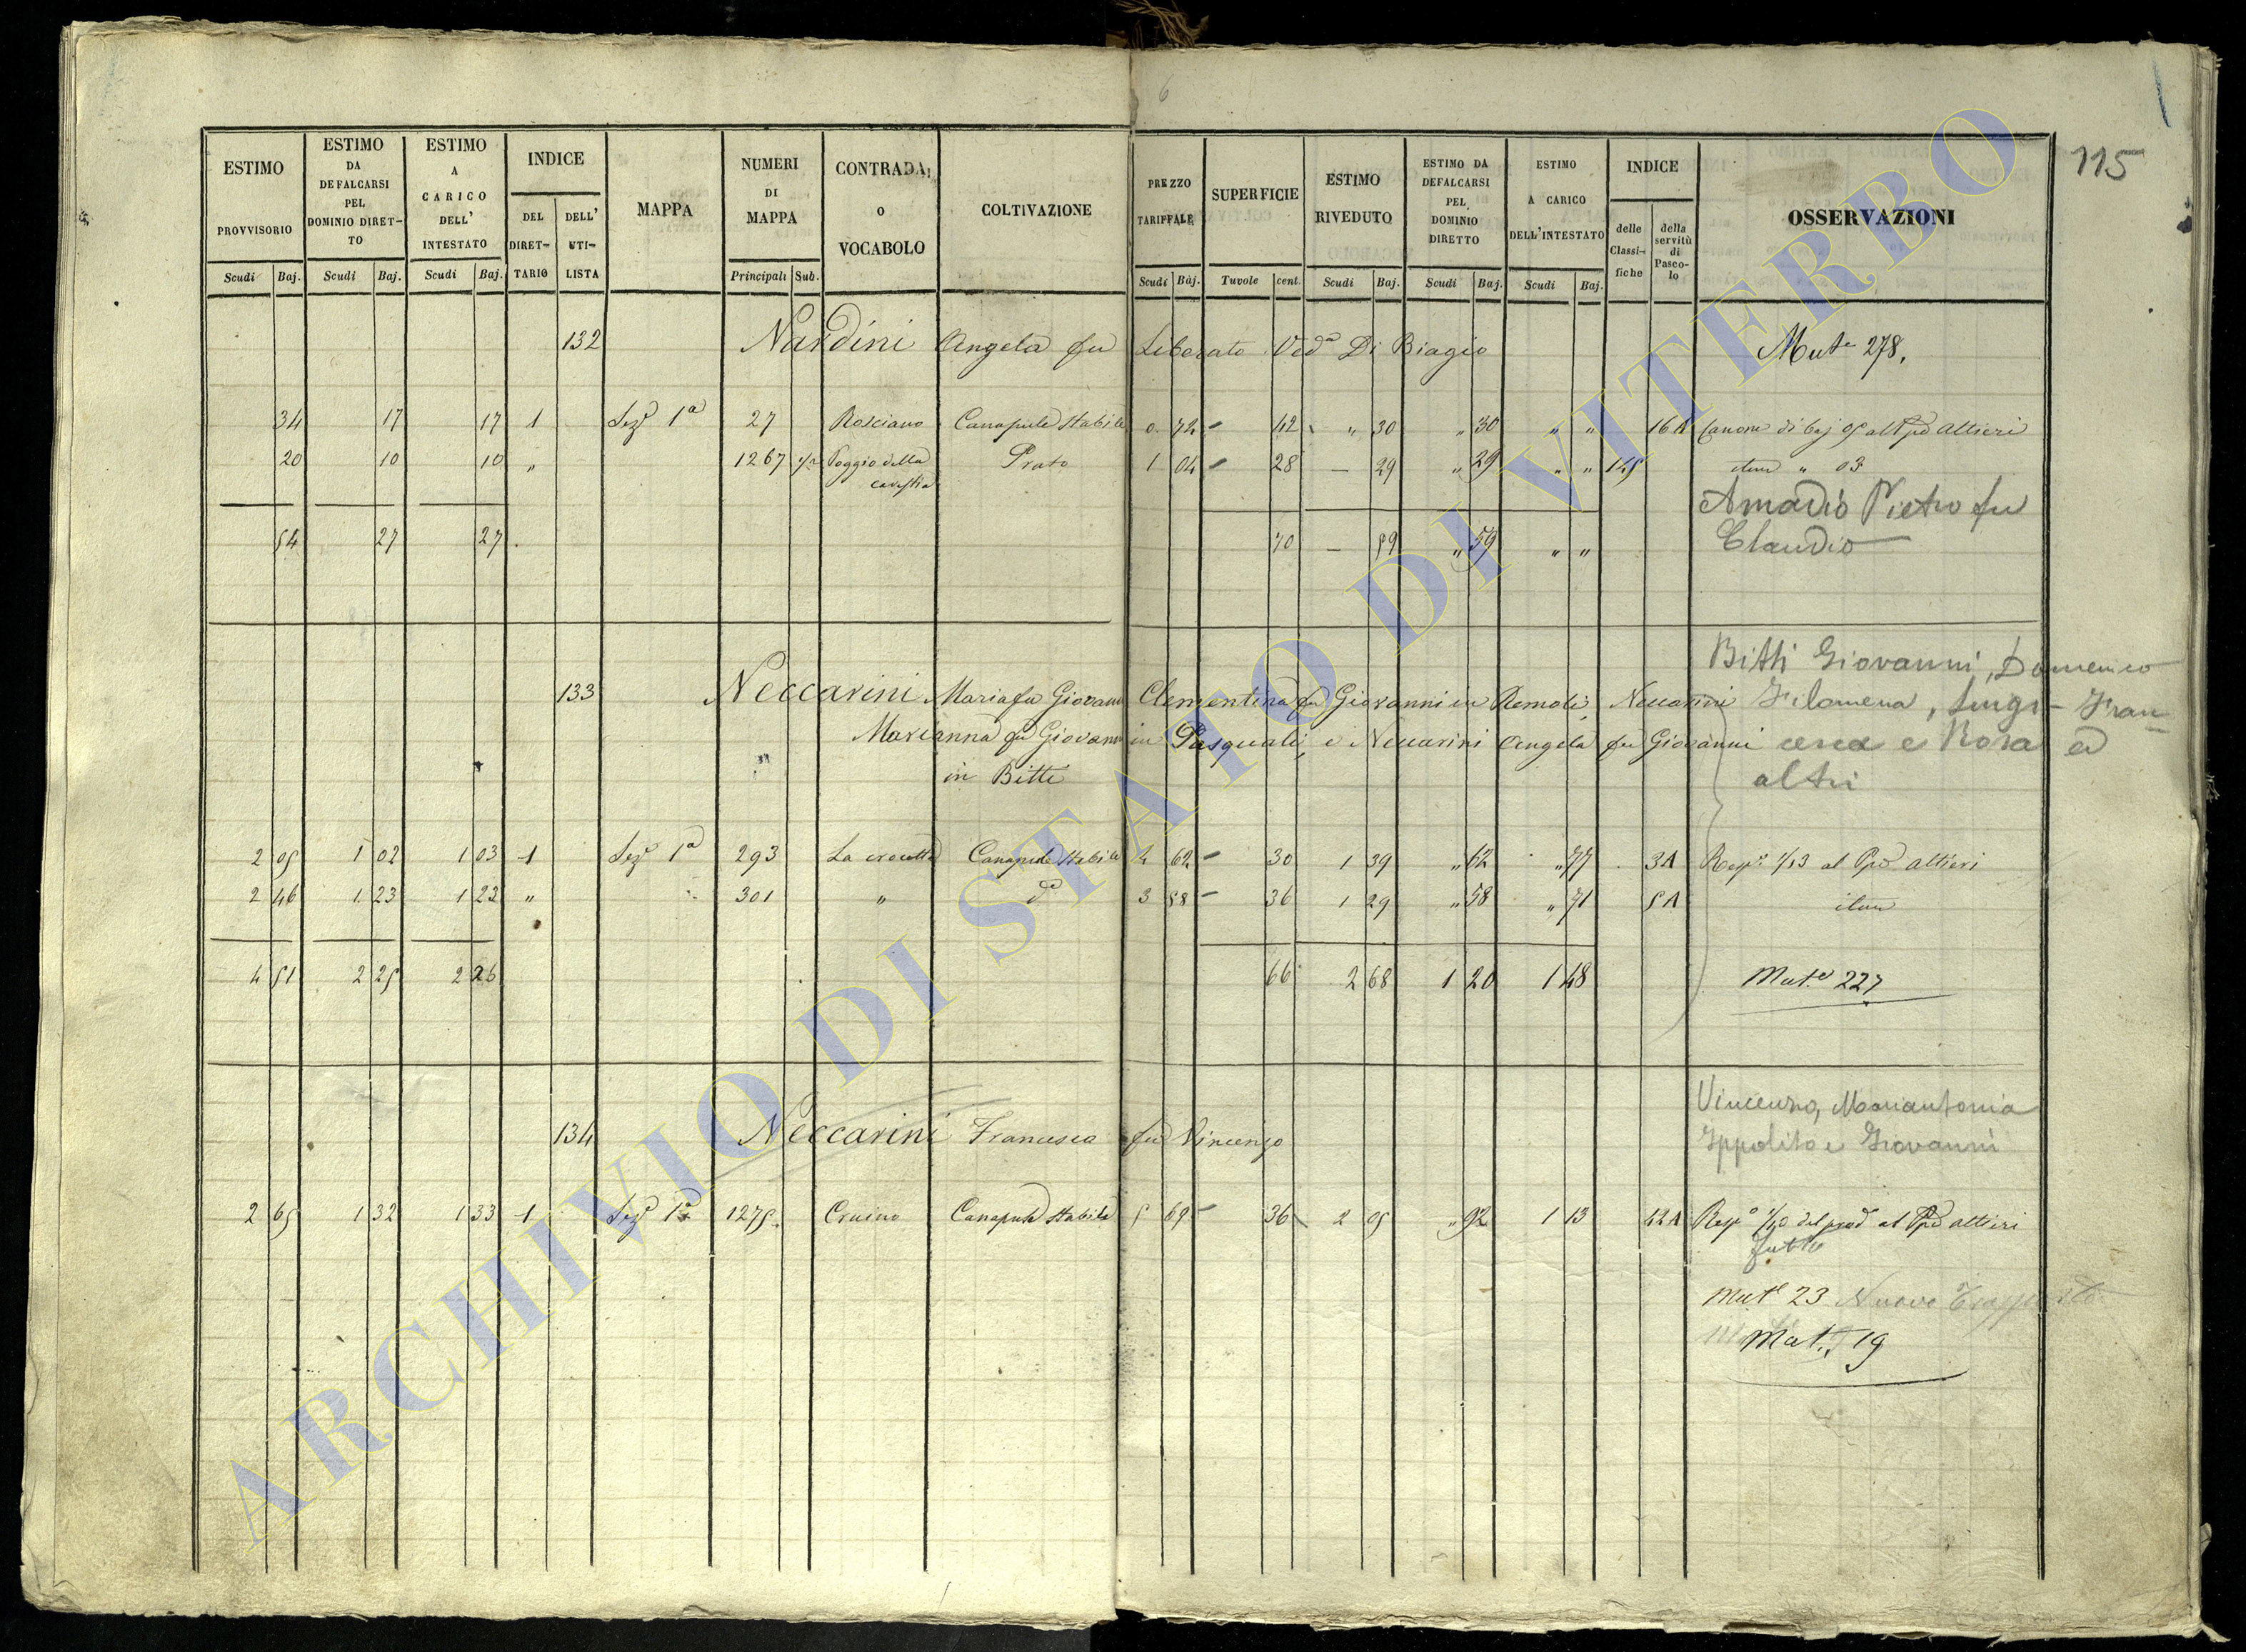 6
115
ESTIMO PROVVISORIO
ESTIMO DA DEFALCARSI PEL DOMINIO DIRET-TO
ESTIMO A CARICO DELL' INTESTATO
INDICE
DEL DIRET-TARIO
DELL' UTI-LISTA
MAPPA
NUMERI DI MAPPA
CONTRADA, O VOCABOLO
COLTIVAZIONE
PREZZO TARIFFALE
SUPERFICIE
ESTIMO RIVEDUTO
ESTIMO DA DEFALCARSI PEL DOMINIO DIRETTO
ESTIMO A CARICO DELL'INTESTATO
INDICE
delle Classi-fiche
della servitù di Pasco-lo
OSSERVAZIONI
Scudi Baj. Scudi Baj. Scudi Baj. Principali Sub. Scudi Baj. Tavole cent. Scudi Baj. Scudi Baj. Scudi Baj.
132 Nardini Angela fu Liberato Ved.a Di Biagio Mut.e 278.
34 17 17 1 Sez.e 1a 27 Rosciano Canapule Stabile 0 72 - 42 " 30 " 30 " " 16 A Canone di baj 05 al Ppe Altieri
20 10 10 " 1267 Poggio della Prato 1 04 - 28 - 29 " 29 " " 145 item " 03
Amadio Pietro fu
54 27 27 70 - 59 " 59 " " Claudio
Bitti Giovanni, Domenico
133 Neccarini Maria fu Giovanni Clementina fu Giovanni in Remoli, Neccarini Filomena, Luigi - Fran-
Marianna fu Giovanni in Pasquali, e Neccarini Angela fu Giovanni cesca e Rosa ed
in Bitti altri
2 05 1 02 1 03 1 Sez.e 1a 293 La crocetta Canapule Stabile 4 62 - 30 1 39 " 62 " 77 3A Resp.e 1/13 al Ppe Altieri
2 46 1 23 1 23 " 301 " do 3 58 - 36 1 29 " 58 " 71 5A item
4 51 2 25 2 26 66 2 68 1 20 1 48 Mut.e 227
Vincenzo, Mariantonia
Ippolito e Giovanni
134 Neccarini Francesca fu Vincenzo
2 65 1 32 1 33 1 Sez.e 1a 1275 Cruino Canapule Stabile 5 69 - 36 2 05 " 92 1 13 42A Resp.e 1/10 del prod.o al Ppe Altieri
Mut.e 23 Nuovo
Mut. 19
ARCHIVIO DI STATO DI VITERBO